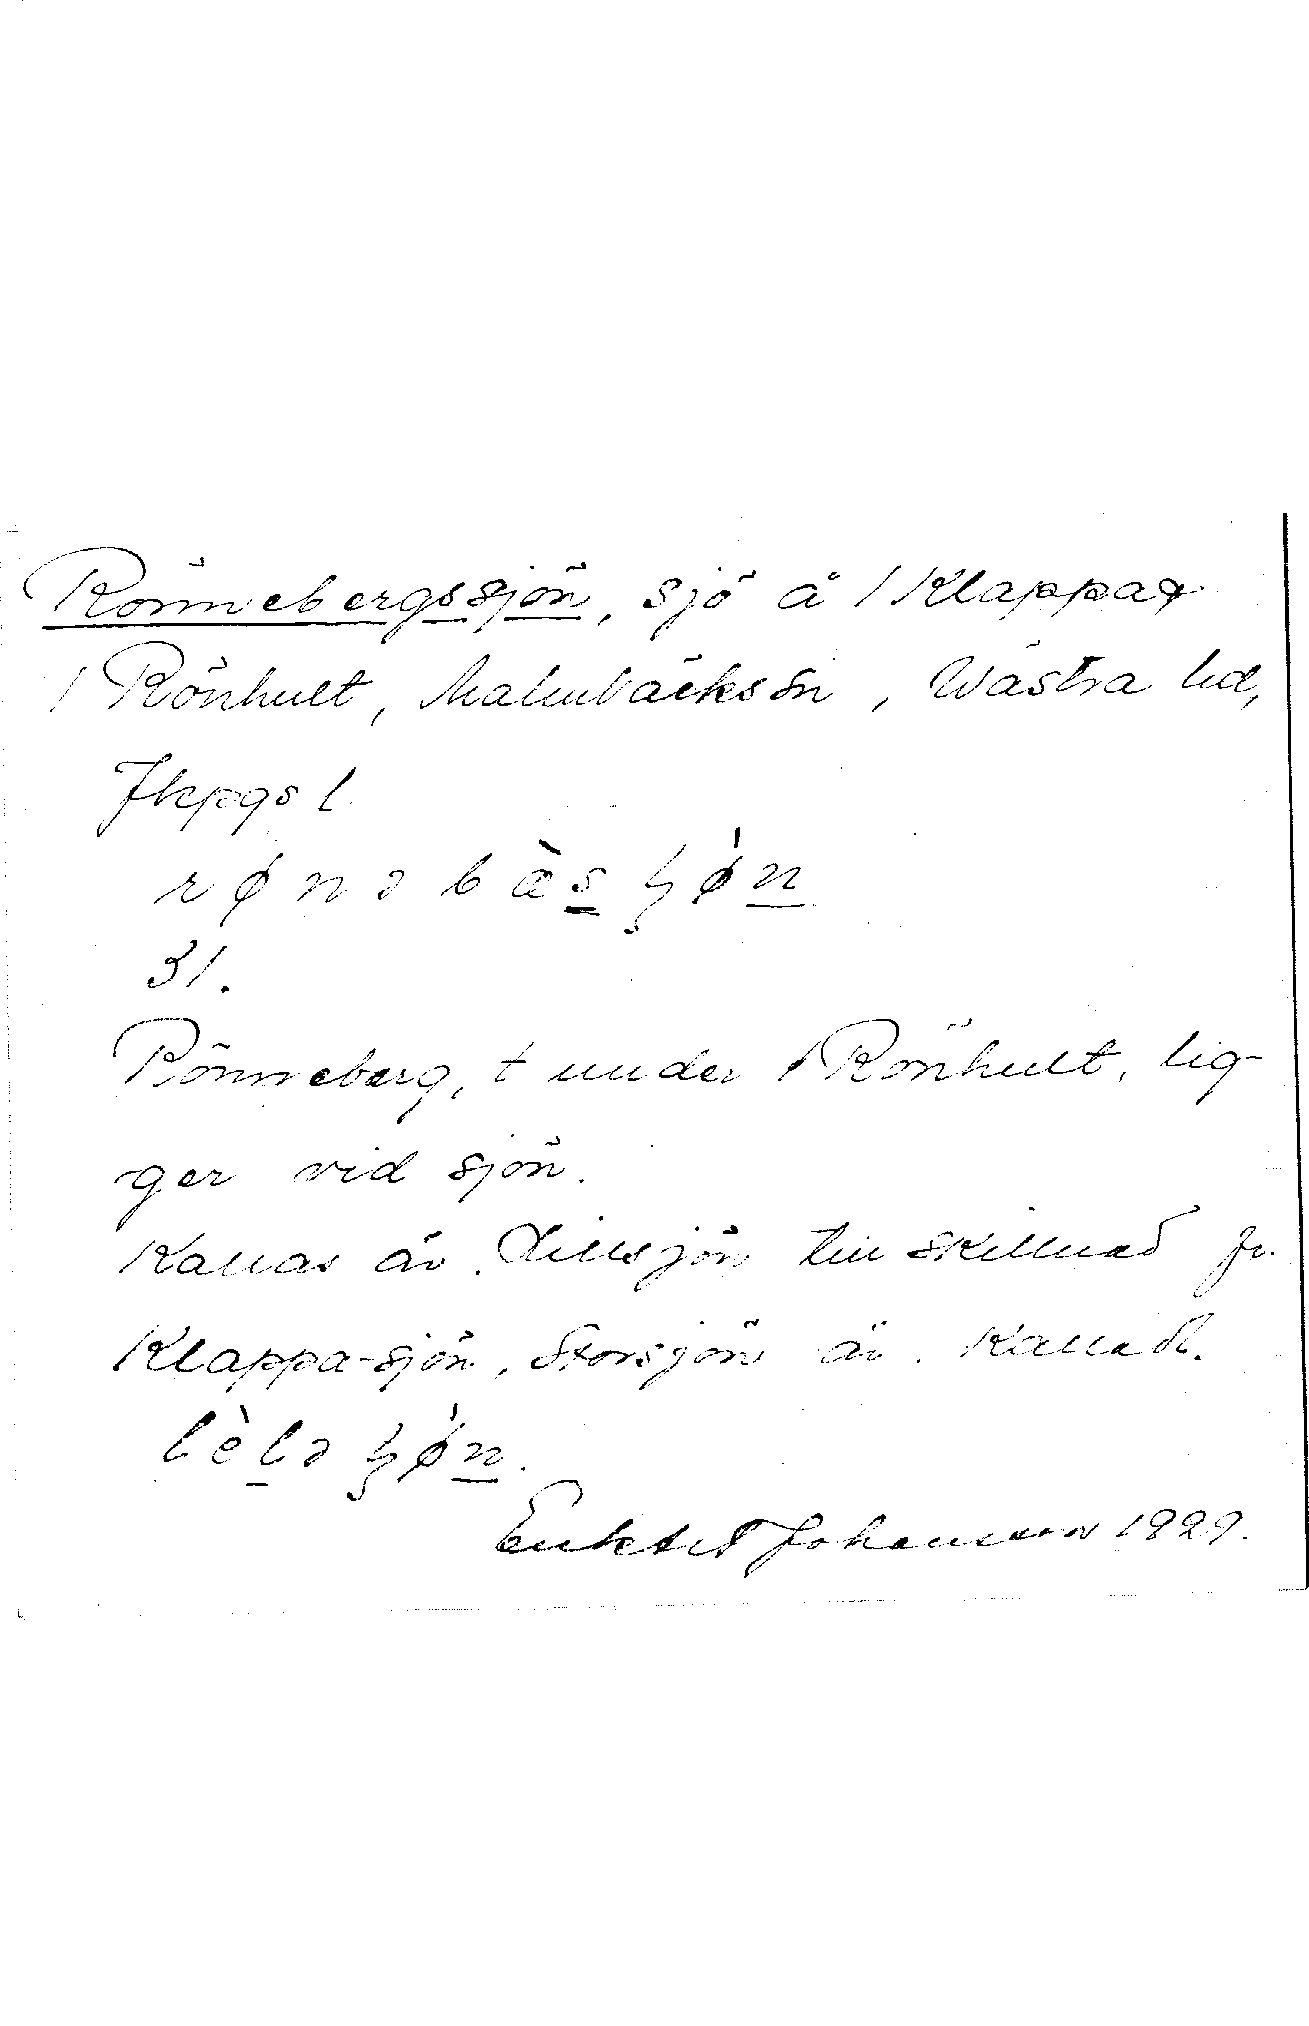 Rönnebergssjön, sjö å / Klappa &
/ Rönhult, Malmbäcks sn, Västra hd,
Jkpgs l.
rønəbæ̀sʂǿn
31.
Rönneberg, t under / Rönhult, lig-
ger vid sjön.
Kallas äv. Lillsjön till skillnad fr.
Klappa-sjön, Storsjön äv. kallad.
lèləʂǿn.
Johansson 1929.